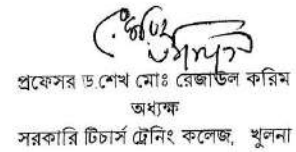 প্রফেসর ড.শেখ মোঃ রেজাউল করিম
অধ্যক্ষ
সরকারি টিচার্স ট্রেনিং কলেজ, খুলনা